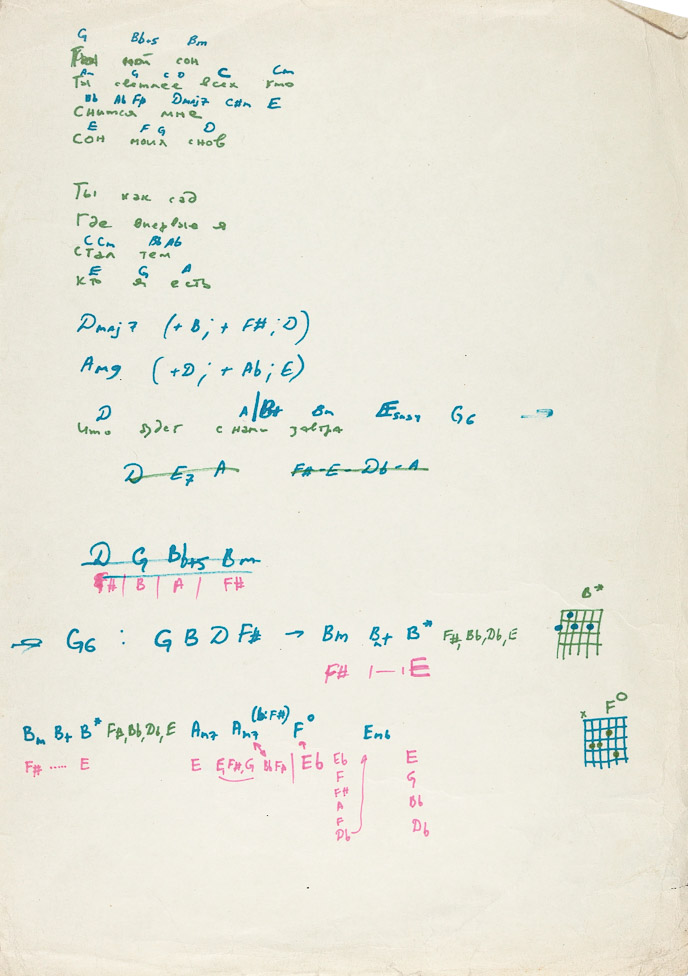 G Bb+5 Bm
мой сон
Am G C D C Cm
Ты светлее всех кто
Bb Ab F# Dmaj7 C#m E
Снится мне
E F G D
Сон моих снов
Ты как сад
Где впервые я
C Cm Bb Ab
Стал тем
E G A
кто я есть
Dmaj7 (+B; +F#; D)
Am9 (+D; +Ab; E)
D A | B+ Bm Esus7 G6 →
Что будет с нами завтра
D E7 A F#-E-Db-A
D G Bb+5 Bm
F# | B | A | F#
B*
→ G6 : G B D F# → Bm B+ B* F#, Bb, Db, E
F# |—·| E
x F°
(b: F#)
Bm B+ B* F#, Bb, Db, E Am7 Am7 F° Em6
F# ..... E E E, F#, G Bb F# | Eb Eb E
F G
F#
A Bb
F
Db Db